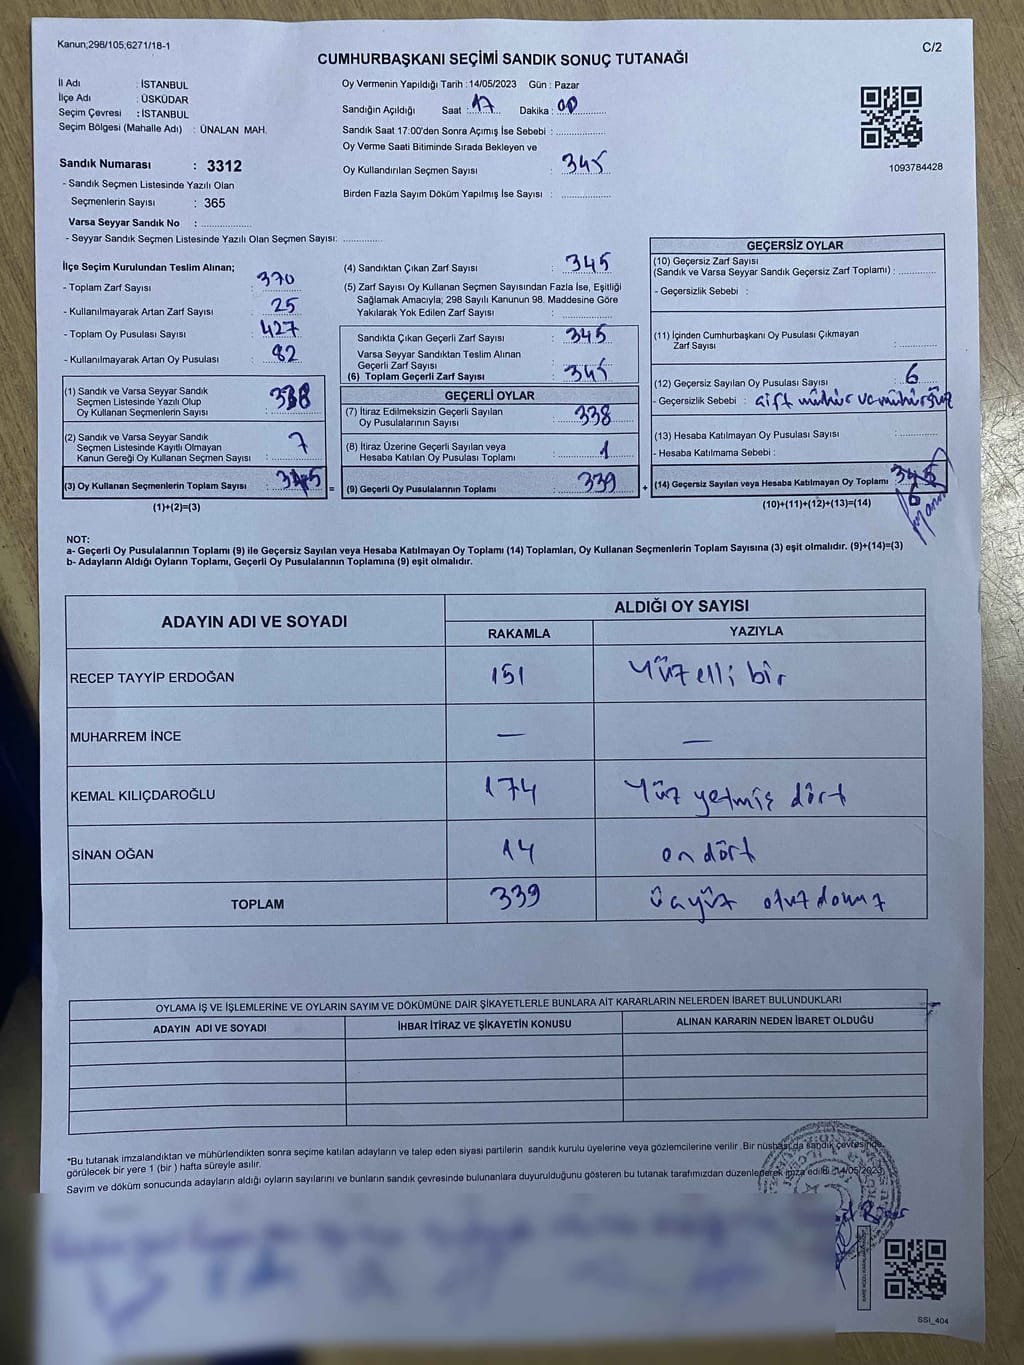 Kanun;298/105,6271/18-1
C/2
CUMHURBAŞKANI SEÇİMİ SANDIK SONUÇ TUTANAĞI
İl Adı : İSTANBUL
İlçe Adı : ÜSKÜDAR
Seçim Çevresi : İSTANBUL
Seçim Bölgesi (Mahalle Adı) : ÜNALAN MAH.
Sandık Numarası : 3312
- Sandık Seçmen Listesinde Yazılı Olan
Seçmenlerin Sayısı : 365
Varsa Seyyar Sandık No :
- Seyyar Sandık Seçmen Listesinde Yazılı Olan Seçmen Sayısı:
Oy Vermenin Yapıldığı Tarih :14/05/2023 Gün : Pazar
Sandığın Açıldığı Saat : 17 Dakika : 00
Sandık Saat 17.00'den Sonra Açımış İse Sebebi :
Oy Verme Saati Bitiminde Sırada Bekleyen ve
Oy Kullandırılan Seçmen Sayısı : 345
Birden Fazla Sayım Döküm Yapılmış İse Sayısı :
1093784428
İlçe Seçim Kurulundan Teslim Alınan;
- Toplam Zarf Sayısı : 370
- Kullanılmayarak Artan Zarf Sayısı : 25
- Toplam Oy Pusulası Sayısı : 427
- Kullanılmayarak Artan Oy Pusulası : 82
(1) Sandık ve Varsa Seyyar Sandık
Seçmen Listesinde Yazılı Olup
Oy Kullanan Seçmenlerin Sayısı : 338
(2) Sandık ve Varsa Seyyar Sandık
Seçmen Listesinde Kayıtlı Olmayan
Kanun Gereği Oy Kullanan Seçmen Sayısı : 7
(3) Oy Kullanan Seçmenlerin Toplam Sayısı : 345
(1)+(2)=(3)
(4) Sandıktan Çıkan Zarf Sayısı : 345
(5) Zarf Sayısı Oy Kullanan Seçmen Sayısından Fazla İse, Eşitliği
Sağlamak Amacıyla; 298 Sayılı Kanunun 98. Maddesine Göre
Yakılarak Yok Edilen Zarf Sayısı :
Sandıkta Çıkan Geçerli Zarf Sayısı : 345
Varsa Seyyar Sandıktan Teslim Alınan
Geçerli Zarf Sayısı :
(6) Toplam Geçerli Zarf Sayısı : 345
GEÇERLİ OYLAR
(7) İtiraz Edilmeksizin Geçerli Sayılan
Oy Pusulalarının Sayısı : 338
(8) İtiraz Üzerine Geçerli Sayılan veya
Hesaba Katılan Oy Pusulası Toplamı : 1
= (9) Geçerli Oy Pusulalarının Toplamı : 339
GEÇERSİZ OYLAR
(10) Geçersiz Zarf Sayısı
(Sandık ve Varsa Seyyar Sandık Geçersiz Zarf Toplamı) :
- Geçersizlik Sebebi :
(11) İçinden Cumhurbaşkanı Oy Pusulası Çıkmayan
Zarf Sayısı :
(12) Geçersiz Sayılan Oy Pusulası Sayısı : 6
- Geçersizlik Sebebi : çift mühür ve mühürsüz
(13) Hesaba Katılmayan Oy Pusulası Sayısı :
- Hesaba Katılmama Sebebi :
+ (14) Geçersiz Sayılan veya Hesaba Katılmayan Oy Toplamı : 345
6
(10)+(11)+(12)+(13)=(14)
NOT:
a- Geçerli Oy Pusulalarının Toplamı (9) ile Geçersiz Sayılan veya Hesaba Katılmayan Oy Toplamı (14) Toplamları, Oy Kullanan Seçmenlerin Toplam Sayısına (3) eşit olmalıdır. (9)+(14)=(3)
b- Adayların Aldığı Oyların Toplamı, Geçerli Oy Pusulalarının Toplamına (9) eşit olmalıdır.
ADAYIN ADI VE SOYADI ALDIĞI OY SAYISI
RAKAMLA YAZIYLA
RECEP TAYYİP ERDOĞAN 151 Yüz elli bir
MUHARREM İNCE — —
KEMAL KILIÇDAROĞLU 174 Yüz yetmiş dört
SİNAN OĞAN 14 on dört
TOPLAM 339 üçyüz otuzdokuz
OYLAMA İŞ VE İŞLEMLERİNE VE OYLARIN SAYIM VE DÖKÜMÜNE DAİR ŞİKAYETLERLE BUNLARA AİT KARARLARIN NELERDEN İBARET BULUNDUKLARI
ADAYIN ADI VE SOYADI İHBAR İTİRAZ VE ŞİKAYETİN KONUSU ALINAN KARARIN NEDEN İBARET OLDUĞU
*Bu tutanak imzalandıktan ve mühürlendikten sonra seçime katılan adayların ve talep eden siyasi partilerin sandık kurulu üyelerine veya gözlemcilerine verilir. Bir nüshası da sandık çevresinde
görülecek bir yere 1 (bir ) hafta süreyle asılır.
Sayım ve döküm sonucunda adayların aldığı oyların sayılarını ve bunların sandık çevresinde bulunanlara duyurulduğunu gösteren bu tutanak tarafımızdan düzenlenerek imza edildi. 14/05/2023
SSI_404